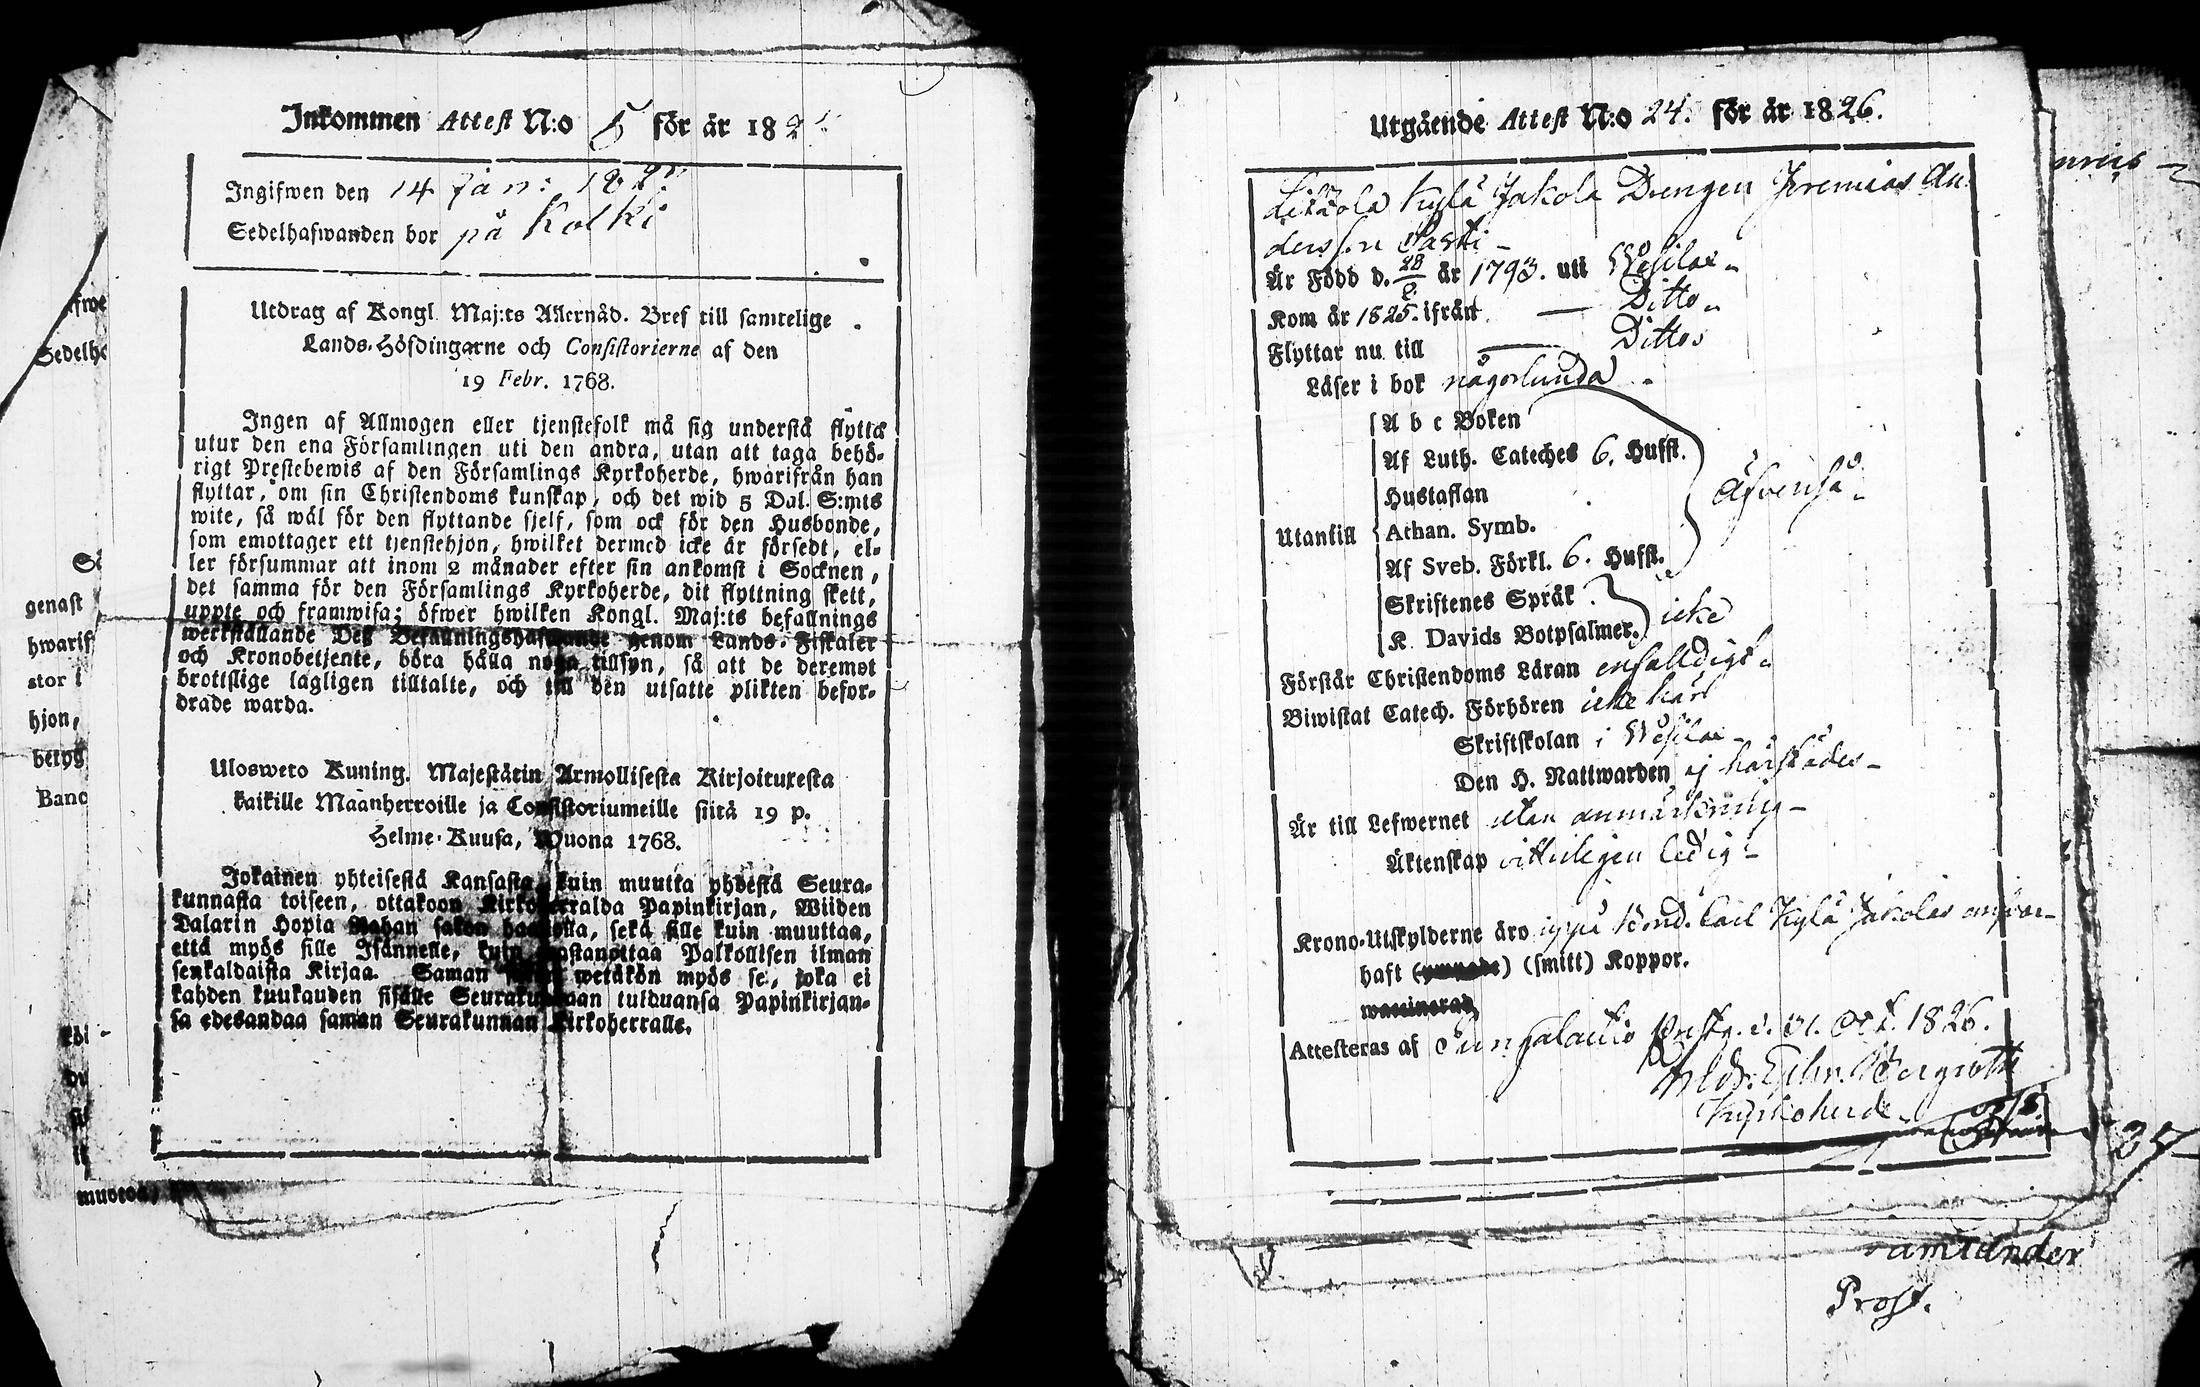 Inkommen Attest N:o 5 för år 182
Ingifwen den 14 Jan: 182
Sedelhafwanden bor på Kolki
Utdrag af Kongl. Maj:ts Allernåd. Bref till samtelige
Lands-Höfdingarne och Consistorierne af den
19 Febr. 1768.
Ingen af Allmogen eller tjenstefolk må sig understå flytta
utur den ena Församlingen uti den andra, utan att taga behö-
rigt Prestebewis af den Församlings Kyrkoherde, hwarifrån han
flyttar, om sin Christendoms kunskap, och det wid 5 Dal. S:mts
wite, så wäl för den flyttande sjelf, som ock för den Husbonde,
som emottager ett tjenstehjon, hwilket dermed icke är försedt, el-
ler försummar att inom 2 månader efter sin ankomst i Socknen,
det samma för den Församlings Kyrkoherde, dit flyttning skett,
uppte och framwisa; öfwer hwilken Kongl. Maj:ts befallnings
werkställande Deß Befallningshafwande genom Lands-Fiskaler
och Kronobetjente, böra hålla noga tillsyn, så att de deremot
brottslige lagligen tilltalte, och till den utsatte plikten befor-
drade warda.
Ulosweto Kuning. Majestätin Armollisesta Kirjoituxesta
kaikille Maanherroille ja Consistoriumeille siitä 19 p.
Helme-Kuusa, Wuona 1768.
Jokainen yhteisestä Kansasta, kuin muutta yhdestä Seura-
kunnasta toiseen, ottakoon Kirkoherralda Papinkirjan, Wiiden
Dalarin Hopia Rahan sakon haastolla, sekä sille kuin muuttaa,
että myös sille Isännelle, kuin wastanottaa Palkollisen ilman
senkaldaista Kirjaa. Saman wetäkön myös se, joka ei
kahden kuukauden sisälle Seurakundaan tulduansa Papinkirjan-
sa edesandaa saman Seurakunnan Kirkoherralle.
Sedelh
genast
hwarif
stor i
hjon,
betyg
Banc
Utgående Attest N:o 24. för år 1826.
Kylä Jakola Drengen Jeremias An-
dersson
Är Född d. 28 år 1793. uti Wesilax
Kom år 1825. ifrån — Ditto
Flyttar nu till — Ditto
Läser i bok någorlunda
Utantill
A b c Boken
Af Luth. Cateches 6. Hufst.
Hustaflan
Athan. Symb.
Af Sveb. Förkl. 6. Hufst.
Äfvenså
Skriftenes Språk
K. Davids Botpsalmer.
icke
Förstår Christendoms Läran enfalldigt
Biwistat Catech. Förhören icke här
Skriftskolan i Wesilax
Den H. Nattwarden ej härstädes
Är till Lefwernet utan anmärkning
Äktenskap vitterligen ledig
Krono-Utskylderne äro Bond. Carl Kylä Jakolas
haft (smitt) Koppor.
Attesteras af d. 31. Oct. 1826.
Bergroth
Kyrkoherde
Prost.